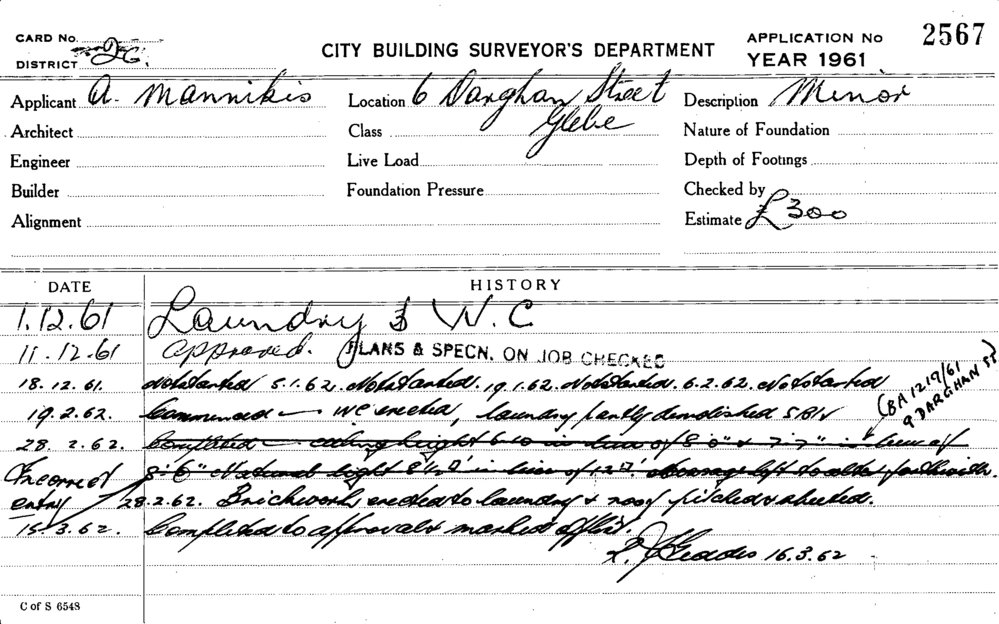 CARD No. 26.
DISTRICT
CITY BUILDING SURVEYOR'S DEPARTMENT
APPLICATION No 2567
YEAR 1961
Applicant A. Mannikis
Location 6 Darghan Street
Glebe
Description Minor
Architect
Class
Nature of Foundation
Engineer
Live Load
Depth of Footings
Builder
Foundation Pressure
Checked by
Alignment
Estimate £300
DATE HISTORY
1.12.61 Laundry & W.C
11.12.61 approved. PLANS & SPECN. ON JOB CHECKED
18.12.61. Not started 5.1.62. Not started. 19.1.62. Not started. 6.2.62. Not started
(BA 1219/61
9 DARGHAN ST)
19.2.62. Commenced — WC erected, laundry partly demolished
28.2.62. Completed — ceiling height 6-10 in lieu of 8'0" & 7'-7" in lieu of
Incorrect
entry
8'-6" Natural light 8½ in lieu of 12 forthwith.
28.2.62. Brickwork erected to laundry & roof pitched & sheeted.
15.3.62. Completed to approval & marked off list.
16.3.62
C of S 6548